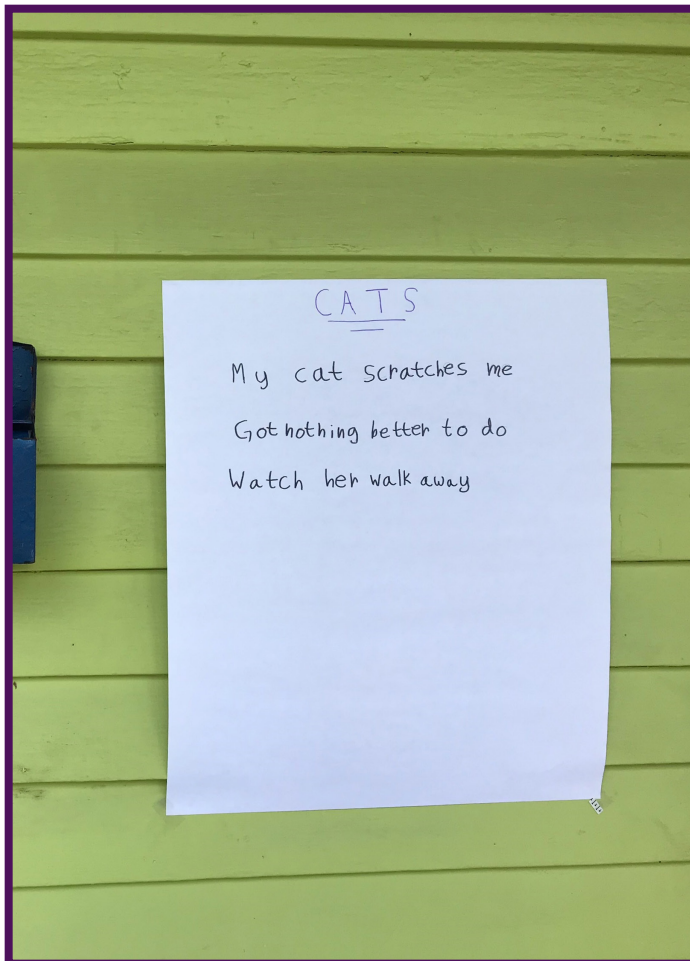 CATS
My cat scratches me
Got nothing better to do
Watch her walk away